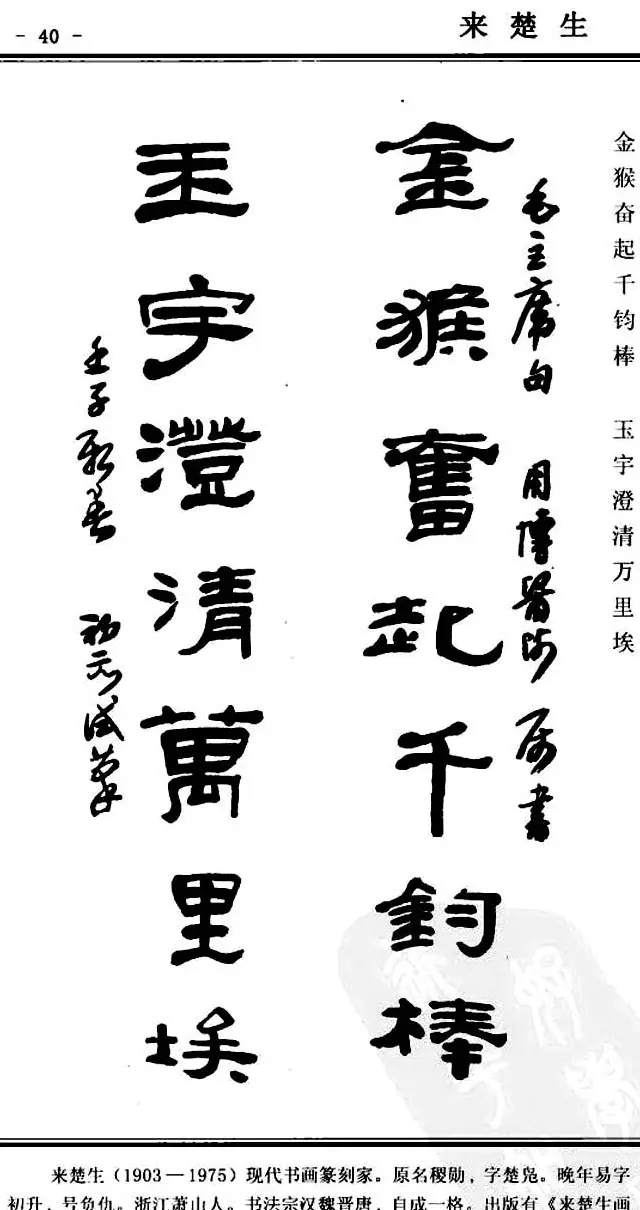 - 40 -
来楚生
金猴奋起千钧棒 玉宇澄清万里埃
毛主席句 用博医师属书
金猴奮起千鈞棒
玉宇澄清萬里埃
壬子新春 初升试笔
来楚生（1903—1975）现代书画篆刻家。原名稷勋，字楚凫。晚年易字
初升，号负仇。浙江萧山人。书法宗汉魏晋唐，自成一格。出版有《来楚生画